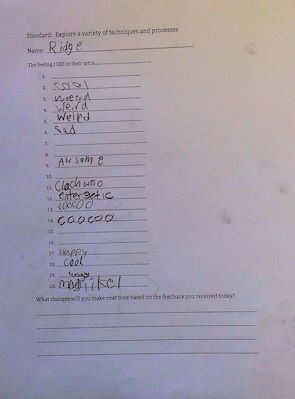 Standard: Explore a variety of techniques and processes
Name: Ridge
The feeling I SEE in their art is
1.
2. cool
3. weird
4. weird
5. Weird
6. Sad
7.
8.
9. AWSOME
10.
11.
12. energetic
13. cooco
14. coocoo
15.
16.
17. Happy
18. Cool
19.
20.
What changes will you make next time based on the feedback you received today?